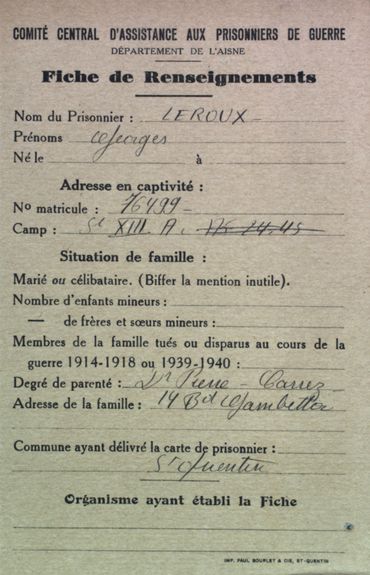 COMITÉ CENTRAL D'ASSISTANCE AUX PRISONNIERS DE GUERRE
DÉPARTEMENT DE L'AISNE
Fiche de Renseignements
Nom du Prisonnier : LEROUX
Prénoms Georges
Né le à
Adresse en captivité :
No matricule : 76499
Camp : St XIII A.
Situation de famille :
Marié ou célibataire. (Biffer la mention inutile).
Nombre d'enfants mineurs :
— de frères et sœurs mineurs :
Membres de la famille tués ou disparus au cours de la
guerre 1914-1918 ou 1939-1940 :
Degré de parenté : Pierre - Carrez
Adresse de la famille : 14 Bd Gambetta
Commune ayant délivré la carte de prisonnier :
St Quentin
Organisme ayant établi la Fiche
IMP. PAUL BOURLET & CIE, ST-QUENTIN